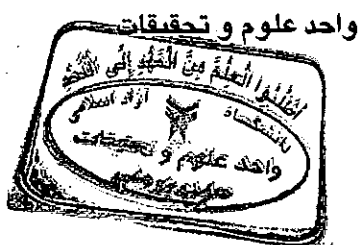 واحد علوم و تحقیقات
اطلبوا العلم من المهد إلى اللحد
دانشگاه آزاد اسلامی
واحد علوم و تحقیقات